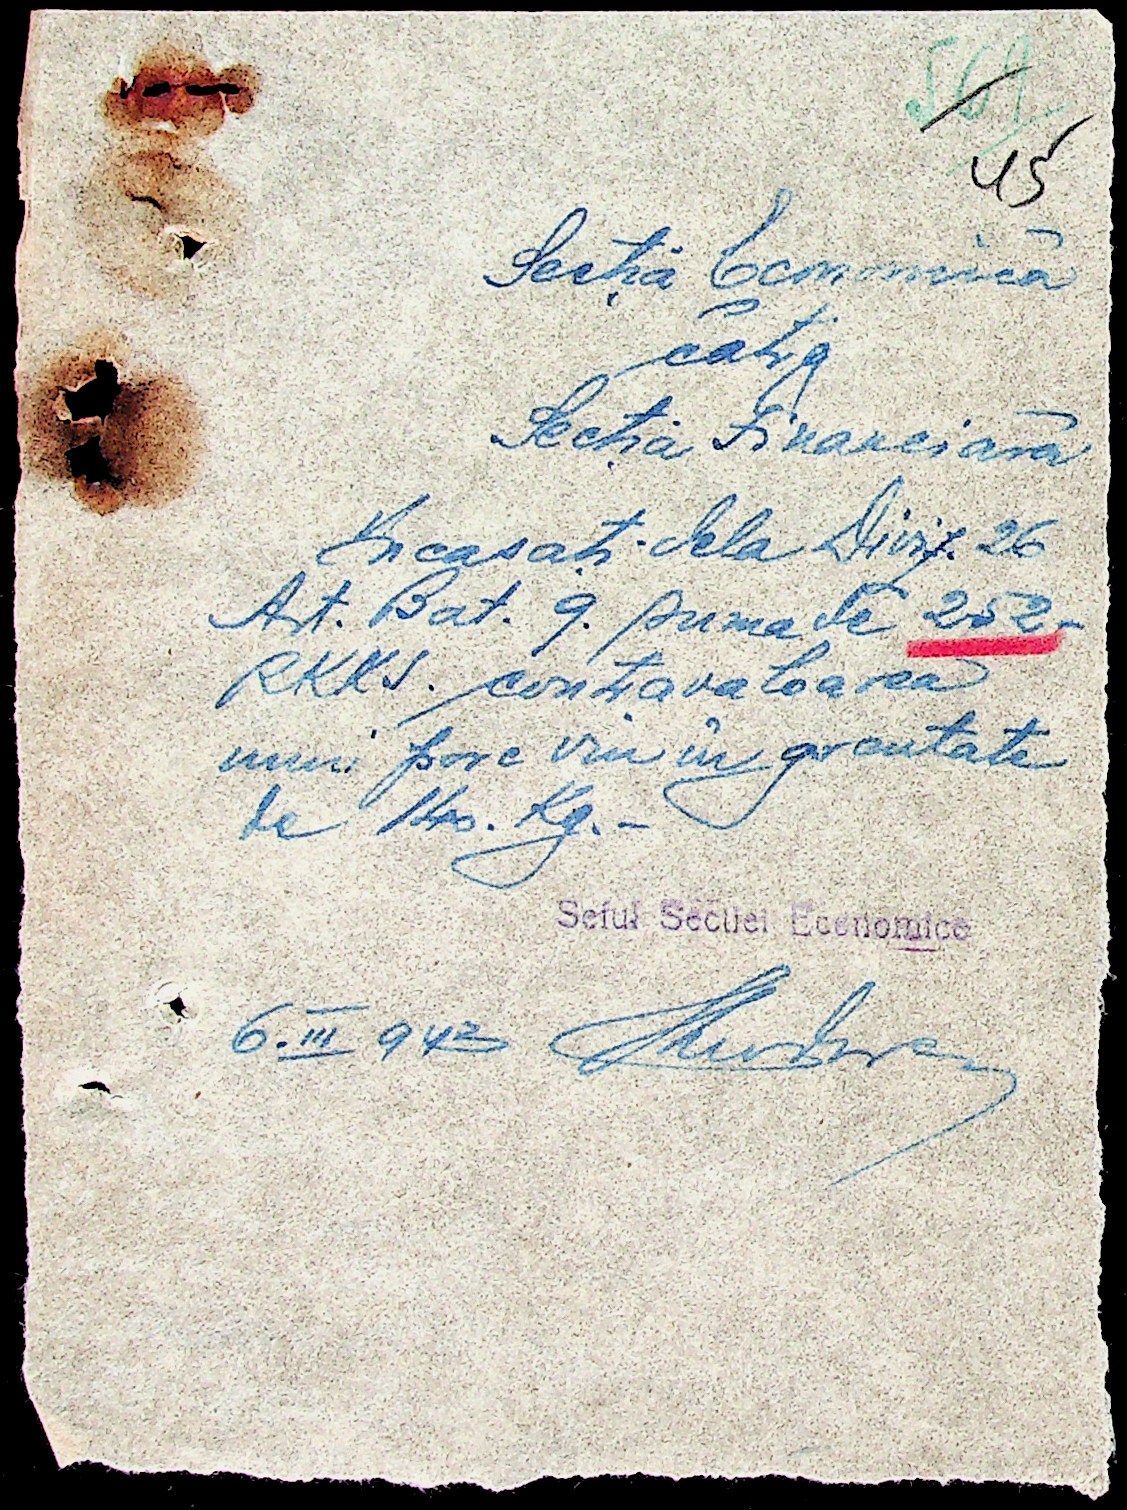 569
45
Secția Economică
către
Secția Financiară
Încasați dela Diviz. 26
Art. Bat. 9. suma de 252-
RKKS. contravaloarea
unui porc viu în greutate
de 140. Kg.-
Șeful Secției Economice
6.III 943